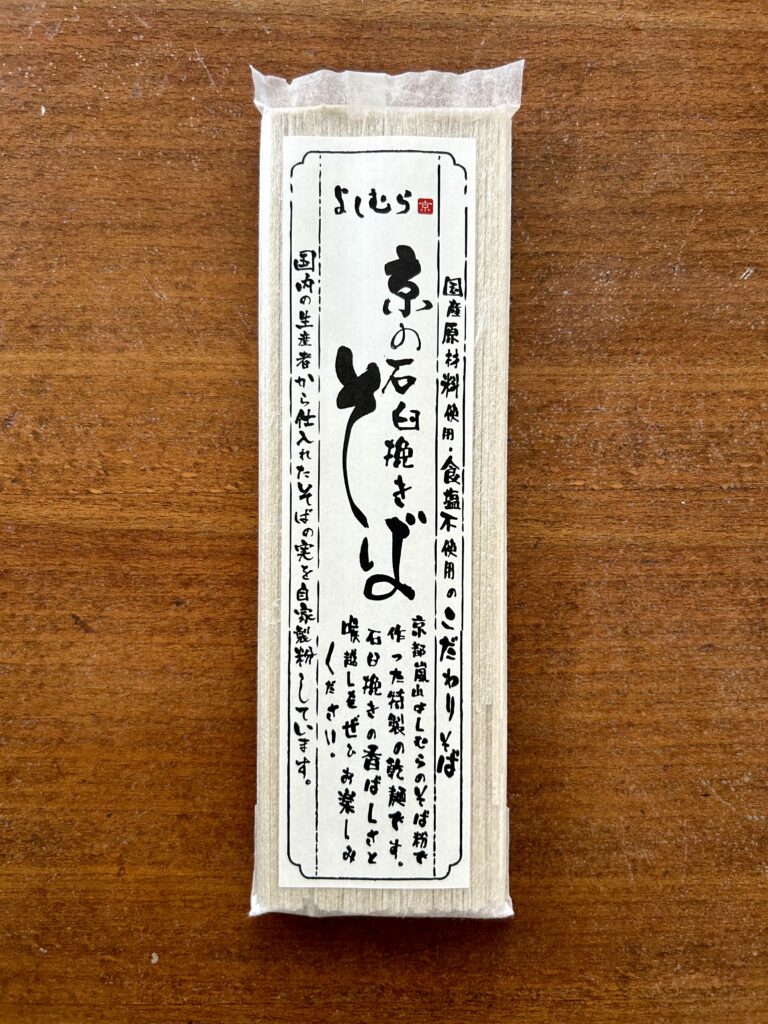 よしむら
京
国産原材料使用・食塩不使用のこだわりそば
京の石臼挽き
そば
京都嵐山よしむらのそば粉で
作った特製の乾麺です。
石臼挽きの香ばしさと
喉越しをぜひお楽しみ
ください。
国内の生産者から仕入れたそばの実を自家製粉しています。